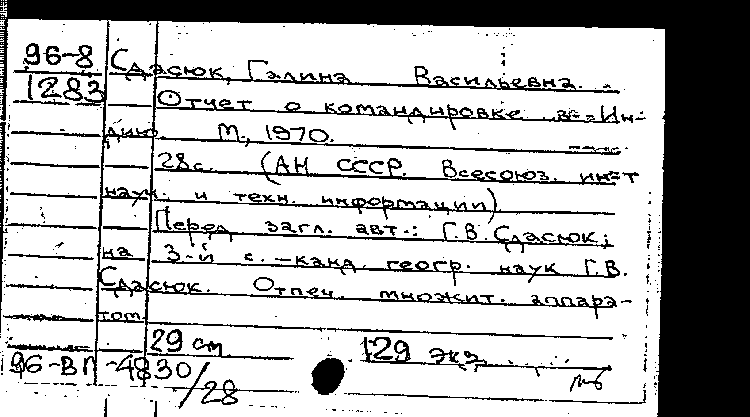 96-8 Сдасюк, Галина Васильевна.
1283 Отчет о командировке в Ин-
дию. М., 1970.
28 с. (АН СССР. Всесоюз. ин-т
науч. и техн. информации)
Перед загл. авт.: Г.В. Сдасюк;
на 3-й с. - канд. геогр. наук Г.В.
Сдасюк. Отпеч. множит. аппара-
том
29 см. 129 экз.
96-ВП-4830/28 мб